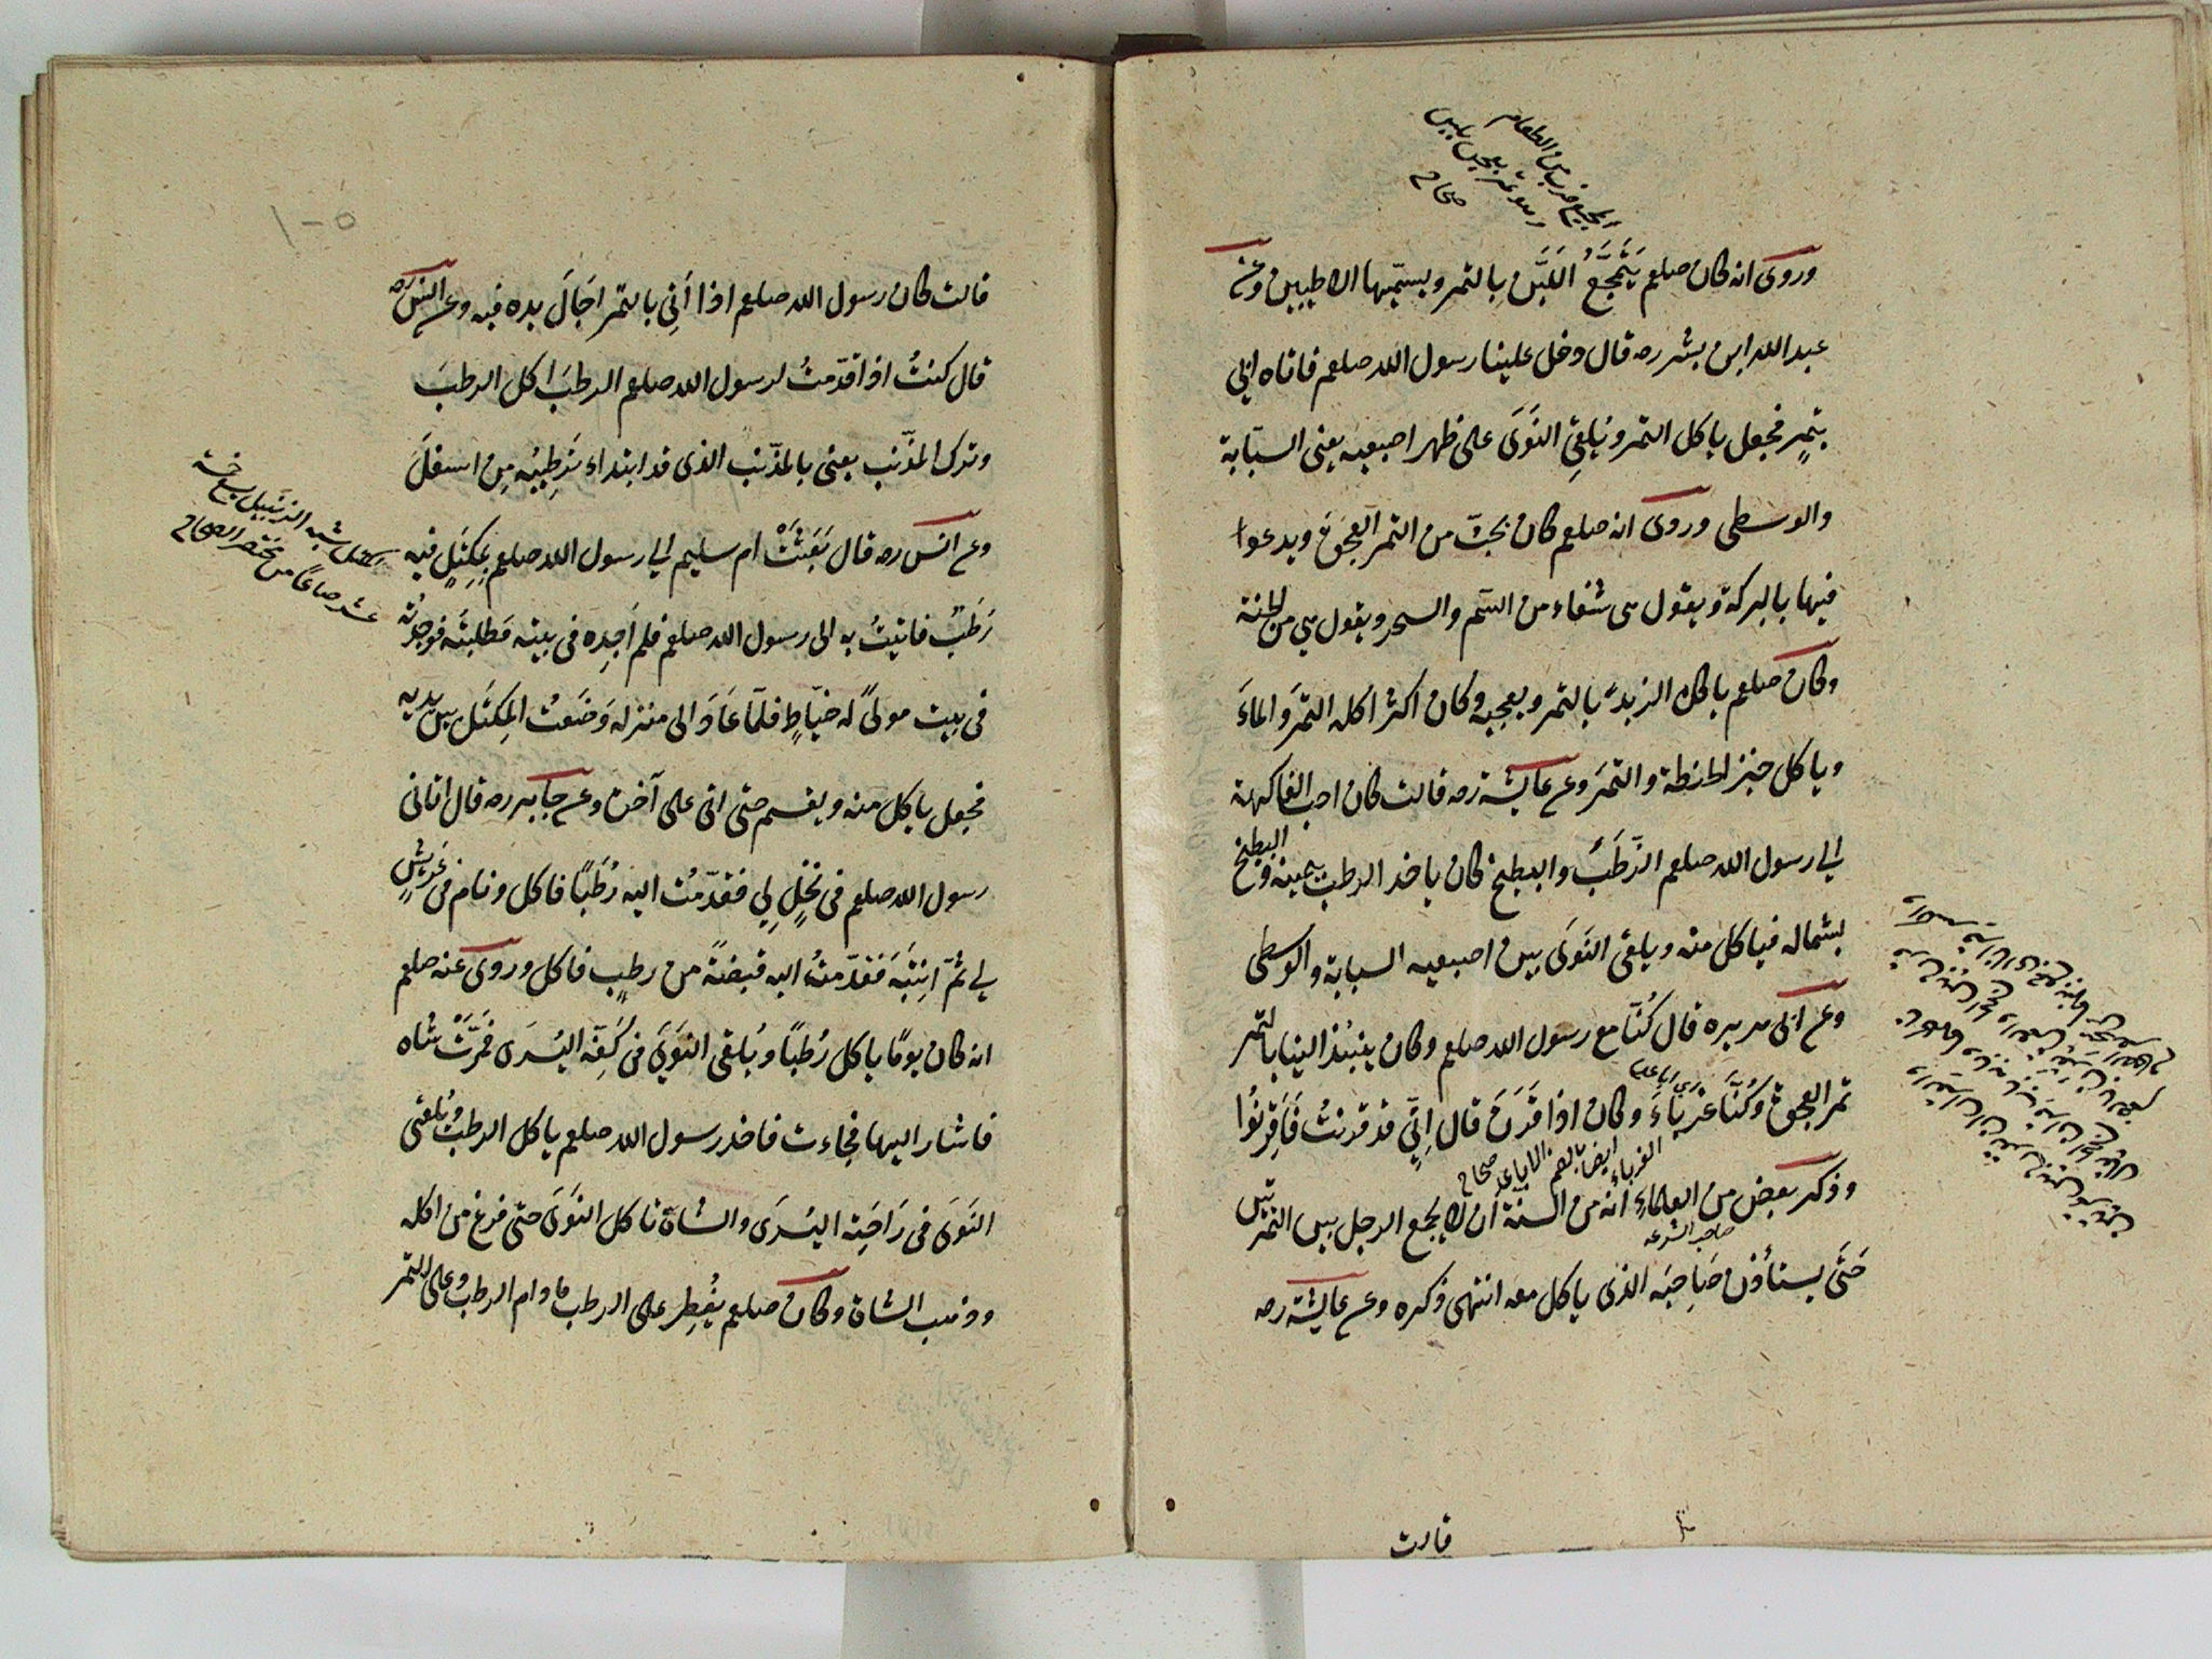 المجيع ضرب من الطعام
وهو تمر يعجن بلبن
صحاح
وروى انه كان صلعم يَتَمَجَّعُ اللَّبَن بالتمر ويسمّيها الاطيبين وعن
عبد الله ابن بشر رضه قال دخل علينا رسول الله صلعم فاتاه ابى
بتمرٍ فجعل ياكل التمر ويلقِى النَوَى على ظهر اصبعيه يعنى السبّابة
والوسطى وروى انه صلعم كان يحبّ من التمر العجوَة ويدعوا
فيها بالبركة ويقول هى شفاء من السّم والسحر ويقول هى من الجنة
وكان صلعم ياكل الزبدَ بالتمر ويعجبه وكان اكثر اكله التمرَ والماءَ
وياكل خبز الحنطة والتمرَ وعن عايشة رضه قالت كان احب الفاكهة
الى رسول الله صلعم الرُّطَبُ والبطيخ كان ياخذ الرطب بيمينه والبطيخ
بشماله فياكل منه ويلقى النَوَى بين اصبعيه السبابة والوسطى
وعن ابى هريره قال كُنّا مع رسول الله صلعم وكان ينبُذ الينا بالتمر
تمر العجوة وكُنَّا غرباءَ وكان اذا قَرَنَ قال اِنِّى قد قرنتُ فَاَقرِنُوا
الغرباء ايضا بالضم الاباعد صحاح
وذكر بعض من العلماءِ انّه من السنّة اَن لا يجمع الرجل بين التمرتين
صاحب الشرعه
حَتَّى يستأذن صَاحِبَه الذى ياكل معه انتهى ذكره وعن عايشة رضه
قالت
١٠٥
قالت كان رسول الله صلعم اذا اُتِى بالتمر اجَالَ يده فيه وعن انس رضه
قال كنتُ اذا قدّمتُ لرسول الله صلعم الرطبَ اكل الرطبَ
وترك المذّنب يعنى بالمذّنب الذى قد ابتداء تَرطِيبُه مِن اسفلَ
وعن انس رضه قال بَعَثَتْ ام سليم الى رسول الله صلعم بمِكتَلٍ فيه
رُطَبٌ فاتيتُ به الى رسول الله صلعم فلم اَجِده فى بيته فطلبتُه فوجدتُه
فى بيت مولىً له خيّاطٍ فلمّا عَادَ الى منزله وَضَعتُ المِكتَل بين يديه
فجعل ياكل منه ويقسم حتى اتى على آخره وعن جابر رضه قال اتانى
رسول الله صلعم فى نخلٍ لِى فقدّمتُ اليه رُطَبًا فاكل ونام فى عَريشٍ
لى ثمّ انتبَه فَقدّمتُ اليه قبضةً من رطبٍ فاكل وروى عنه صلعم
انه كان يومًا ياكل رُطبًا ويُلقى النَوَى فى كَفِّه اليُسرَى فمَرَّتْ شاه
فاشار اليها فجاءت فاخذ رسول الله صلعم ياكل الرطبَ ويُلقى
النَوَى فى رَاحَتِه اليسرَى والشاة تاكل النَوَى حتى فرغ من اكله
وذهب الشاة وكان صلعم يُفطِر على الرطب ما دام الرطب وعلى التمر
المكتل شبه الزنبيل يسع خمسة
عشر صاعًا من مختصر الصحاح